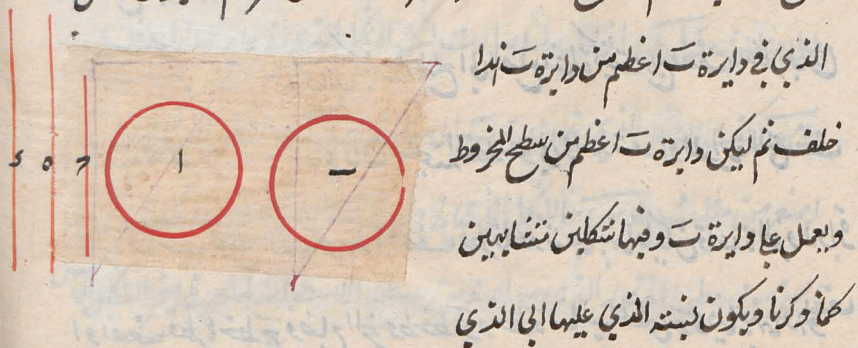 الذي في دايرة ب اعظم من دايرة ب هذا
خلف ثم ليكن دايرة ب اعظم من سطح المخروط
ويعمل علي دايرة ب وفيها شكلين متشابهين
كما ذكرنا ويكون نسبة الذي عليها الي الذي
ا
ب
ج
ه
د